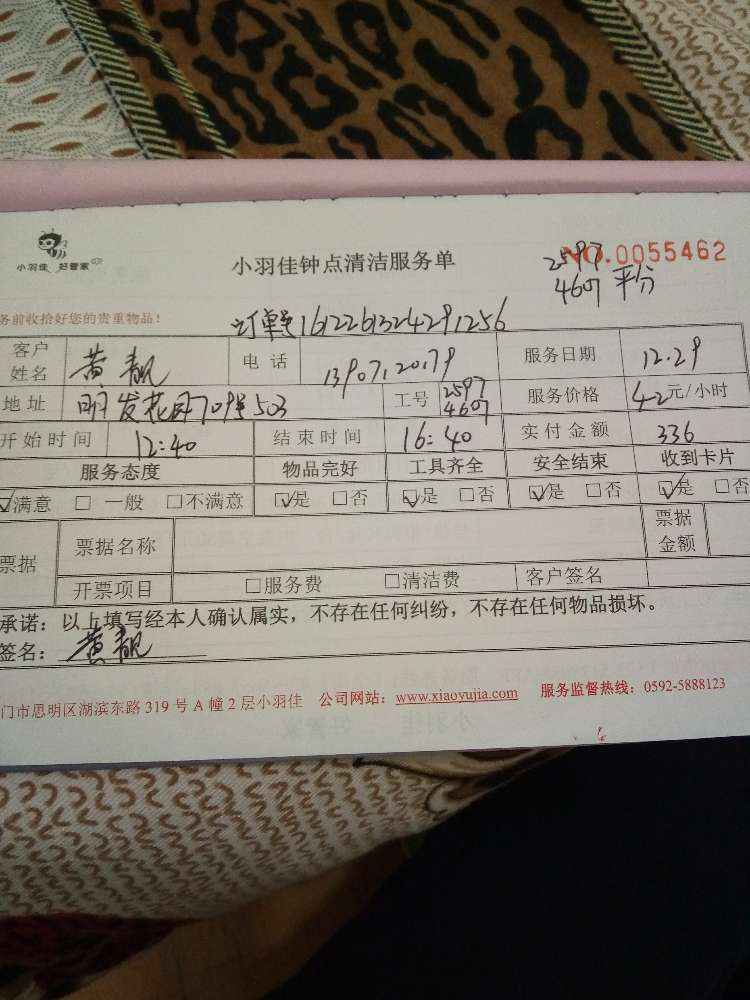 小羽佳 好管家
小羽佳钟点清洁服务单
NO.0055462
2597
4607 平分
务前收拾好您的贵重物品!
订单号1612261324291256
客户姓名 黄靓 电话 服务日期 12.29
地址 明发花园709号503 工号 2597 4607 服务价格 42元/小时
开始时间 12:40 结束时间 16:40 实付金额 336
服务态度 物品完好 工具齐全 安全结束 收到卡片
☑满意 □一般 □不满意 ☑是 □否 ☑是 □否 ☑是 □否 ☑是 □否
票据 票据名称 票据金额
开票项目 □服务费 □清洁费 客户签名
承诺:以上填写经本人确认属实,不存在任何纠纷,不存在任何物品损坏。
签名: 黄靓
门市思明区湖滨东路319号A幢2层小羽佳 公司网站:www.xiaoyujia.com 服务监督热线:0592-5888123